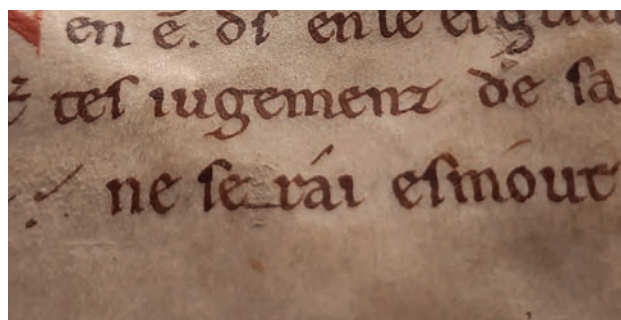 en ē. dſ en le eigua
teſ iugemenz de ſa
ne ſe rái eſmóut